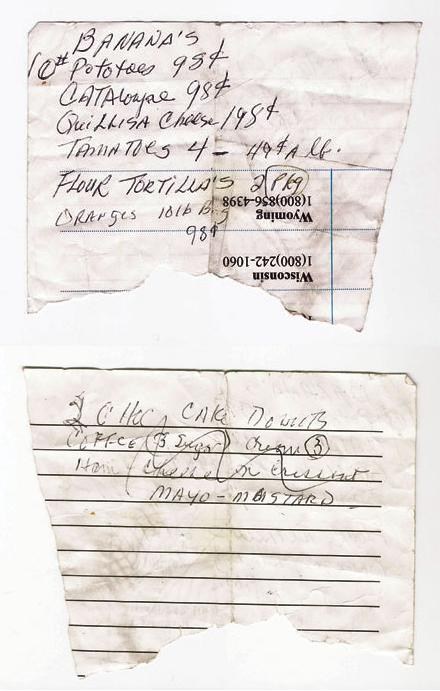 BANANA'S
10# Pototoes 98¢
CATAloupe 98¢
QuiLLISA Cheese 198¢
TAMATOES 4 - 49¢ A lb.
FLOUR TORTILLA'S 2 PKg
1(800)856-4398
ORANGES 10lb Bag
Wyoming
98¢
1(800)242-1060
Wisconsin
CAKE DONUTS
COFFEE 3 Sugar Cream 3
Ham Cheese on Cressant
MAYO - MUSTARD